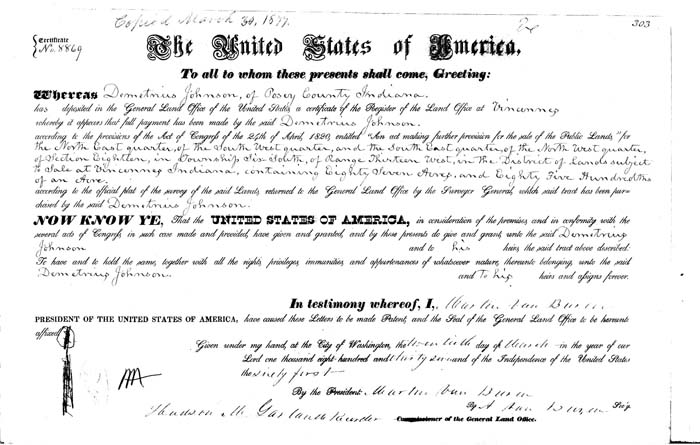 Copied March 30, 1899.
303
Certificate
No. 8869
The United States of America,
To all to whom these presents shall come, Greeting:
Whereas Demetrius Johnson, of Posey County Indiana.
has deposited in the General Land Office of the United States, a certificate of the Register of the Land Office at Vincennes
whereby it appears that full payment has been made by the said Demetrius Johnson.
according to the provisions of the Act of Congress of the 24th of April, 1820, entitled "An act making further provision for the sale of the Public Lands," for
the North East quarter, of the South West quarter, and the South East quarter, of the North West quarter,
of Section Eighteen, in Township Six South, of Range Thirteen West, in the District of Lands subject
to Sale at Vincennes Indiana, containing Eighty Seven Acres, and Eighty Five Hundredths
of an Acre.
according to the official plat of the survey of the said Lands, returned to the General Land Office by the Surveyor General, which said tract has been pur-
chased by the said Demetrius Johnson.
NOW KNOW YE, That the UNITED STATES OF AMERICA, in consideration of the premises, and in conformity with the
several acts of Congress, in such case made and provided, have given and granted, and by these presents do give and grant, unto the said Demetrius
Johnson and to his heirs, the said tract above described:
To have and to hold the same, together with all the rights, privileges, immunities, and appurtenances of whatsoever nature, thereunto belonging, unto the said
Demetrius Johnson. and to his heirs and assigns forever.
In testimony whereof, I, Martin Van Buren
PRESIDENT OF THE UNITED STATES OF AMERICA, have caused these Letters to be made Patent, and the Seal of the General Land Office to be hereunto
affixed.
Given under my hand, at the City of Washington, the twentieth day of March in the year of our
Lord one thousand eight hundred and thirty seven and of the Independence of the United States
the sixty first
By the President: Martin Van Buren
By A. Van Buren Sec'y.
Hudson M. Garland Recorder Commissioner of the General Land Office.